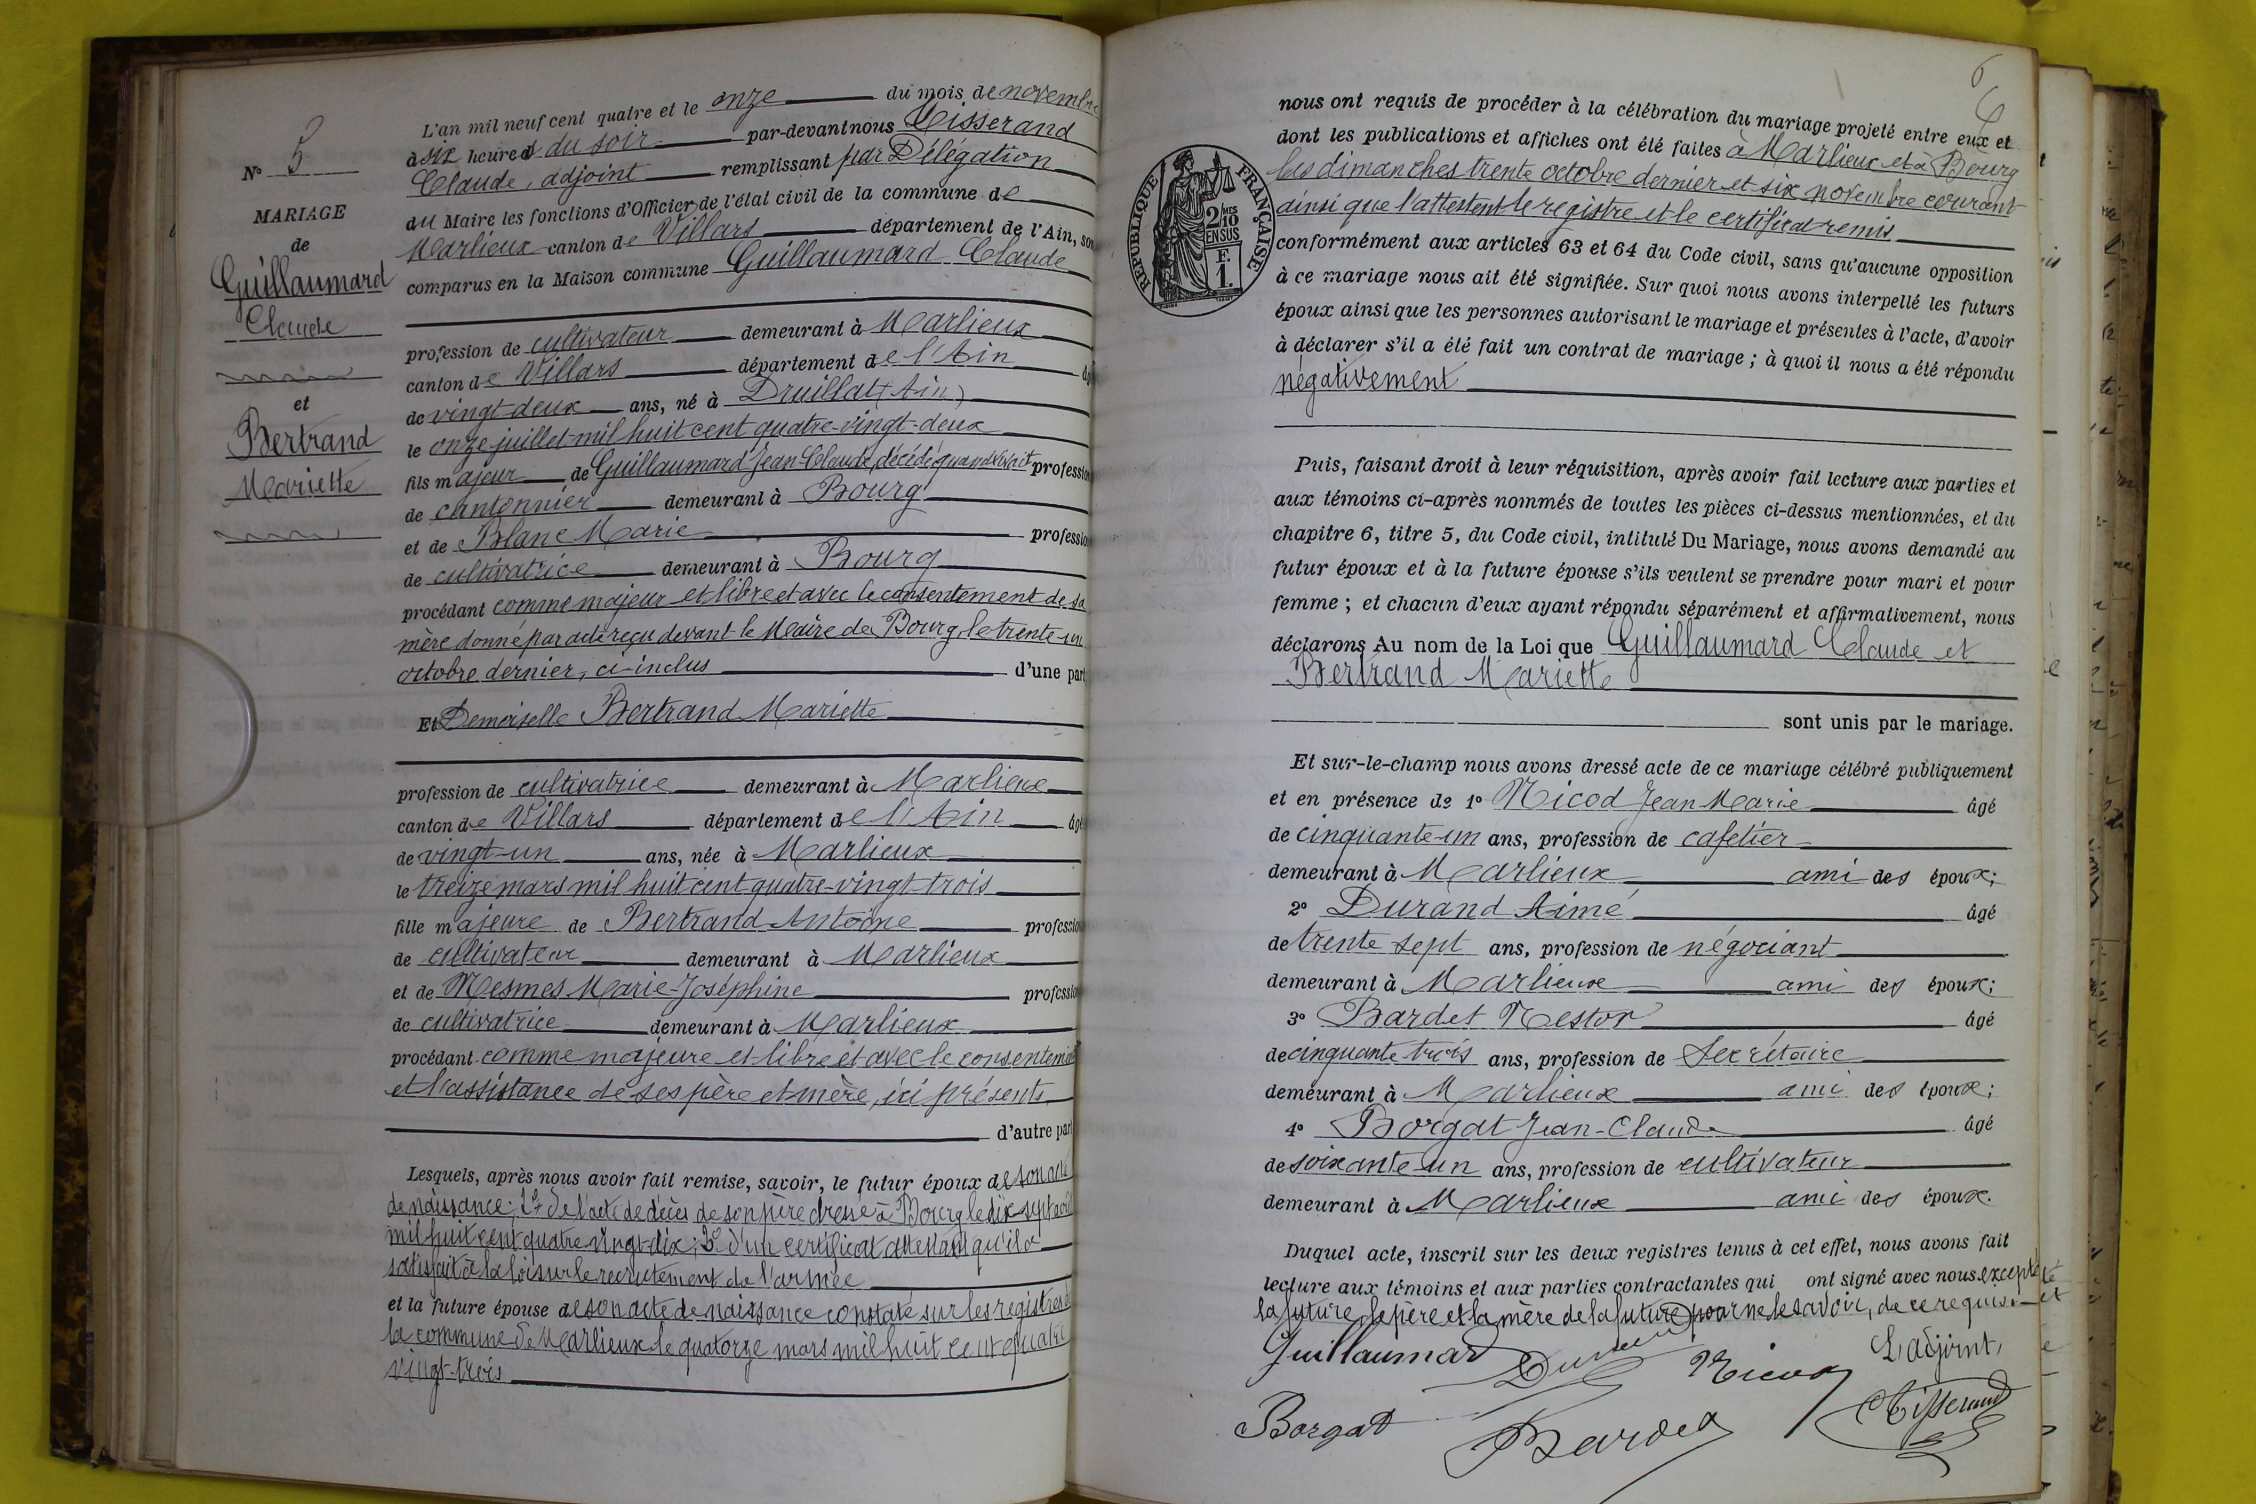 N° 5
MARIAGE
de
Guillaumard
Claude
et
Bertrand
Mariette
L'an mil neuf cent quatre et le onze du mois de novembre
à six heures du soir par-devant nous Tisserand
Claude, adjoint remplissant par Délégation
du Maire les fonctions d'Officier de l'état civil de la commune de
Marlieux canton de Villars département de l'Ain, sont
comparus en la Maison commune Guillaumard Claude
profession de cultivateur demeurant à Marlieux
canton de Villars département de l'Ain âgé
de vingt deux ans, né à Druillat (Ain)
le onze juillet mil huit cent quatre-vingt-deux
fils majeur de Guillaumard Jean Claude, décédé quand vivait profession
de cantonnier demeurant à Bourg
et de Blanc Marie profession
de cultivatrice demeurant à Bourg
procédant comme majeur et libre et avec le consentement de sa
mère donné par acte reçu devant le Maire de Bourg le trente-un
octobre dernier, ci-inclus d'une part
Et Demoiselle Bertrand Mariette
profession de cultivatrice demeurant à Marlieux
canton de Villars département de l'Ain âgé
de vingt-un ans, née à Marlieux
le treize mars mil huit cent quatre-vingt trois
fille majeure de Bertrand Antoine profession
de cultivateur demeurant à Marlieux
et de Mesmes Marie-Joséphine profession
de cultivatrice demeurant à Marlieux
procédant comme majeure et libre et avec le consentement
et l'assistance de ses père et mère, ici présents
d'autre part
Lesquels, après nous avoir fait remise, savoir, le futur époux de son acte
de naissance; 2° de l'acte de décès de son père dressé à Bourg le dix-sept
mil huit cent quatre vingt-dix; 3° d'un certificat attestant qu'il a
satisfait à la loi sur le recrutement de l'armée
et la future épouse de son acte de naissance constaté sur les registres de
la commune de Marlieux le quatorze mars mil huit cent quatre
vingt-trois
6
RÉPUBLIQUE FRANÇAISE
2/10 MES
EN SUS
F.
1.
nous ont requis de procéder à la célébration du mariage projeté entre eux et
dont les publications et affiches ont été faites à Marlieux et à Bourg
les dimanches trente octobre dernier et six novembre courant
ainsi que l'attestent le registre et le certificat remis
conformément aux articles 63 et 64 du Code civil, sans qu'aucune opposition
à ce mariage nous ait été signifiée. Sur quoi nous avons interpellé les futurs
époux ainsi que les personnes autorisant le mariage et présentes à l'acte, d'avoir
à déclarer s'il a été fait un contrat de mariage; à quoi il nous a été répondu
négativement
Puis, faisant droit à leur réquisition, après avoir fait lecture aux parties et
aux témoins ci-après nommés de toutes les pièces ci-dessus mentionnées, et du
chapitre 6, titre 5, du Code civil, intitulé Du Mariage, nous avons demandé au
futur époux et à la future épouse s'ils veulent se prendre pour mari et pour
femme; et chacun d'eux ayant répondu séparément et affirmativement, nous
déclarons Au nom de la Loi que Guillaumard Claude et
Bertrand Mariette
sont unis par le mariage.
Et sur-le-champ nous avons dressé acte de ce mariage célébré publiquement
et en présence de 1° Nicod Jean Marie âgé
de cinquante-un ans, profession de cafetier
demeurant à Marlieux ami des époux;
2° Durand Aimé âgé
de trente sept ans, profession de négociant
demeurant à Marlieux ami des époux;
3° Bardet Nestor âgé
de cinquante trois ans, profession de Secrétaire
demeurant à Marlieux ami des époux;
4° Borgat Jean-Claude âgé
de soixante-un ans, profession de cultivateur
demeurant à Marlieux ami des époux.
Duquel acte, inscrit sur les deux registres tenus à cet effet, nous avons fait
lecture aux témoins et aux parties contractantes qui ont signé avec nous excepté
la future, le père et la mère de la future pour ne le savoir, de ce requis
Guillaumard Durand Nicod L'adjoint,
Borgat Bardet CTisserand